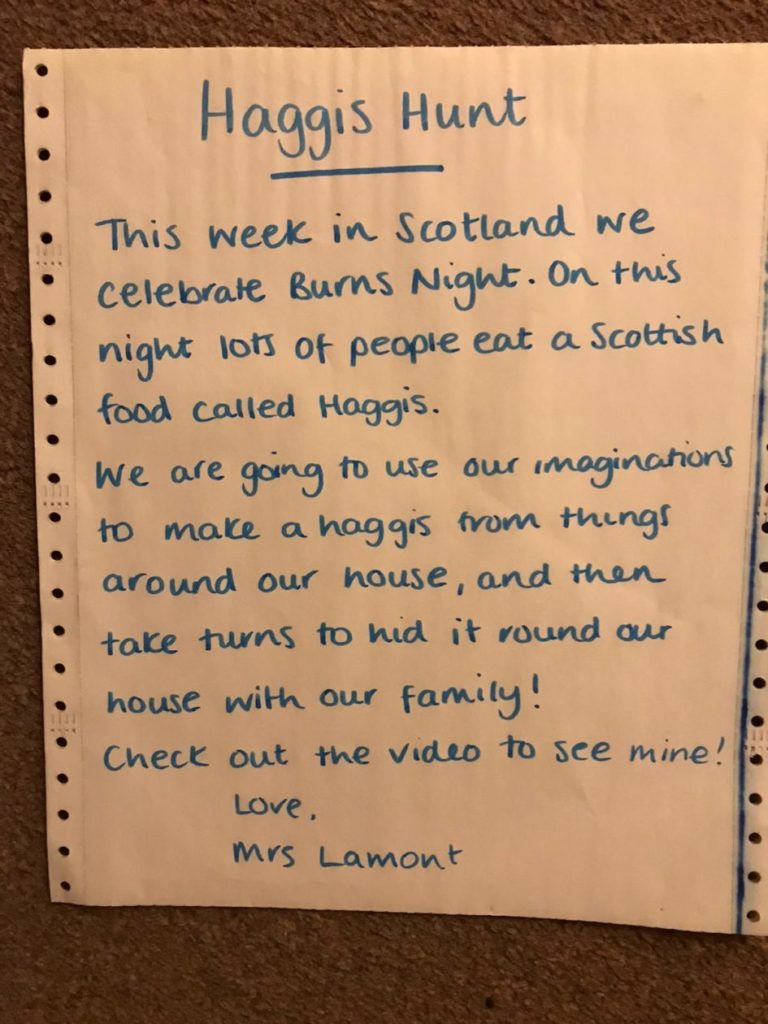 Haggis Hunt
This week in Scotland we
celebrate Burns Night. On this
night lots of people eat a Scottish
food called Haggis.
We are going to use our imaginations
to make a haggis from things
around our house, and then
take turns to hid it round our
house with our family!
Check out the video to see mine!
Love,
Mrs Lamont